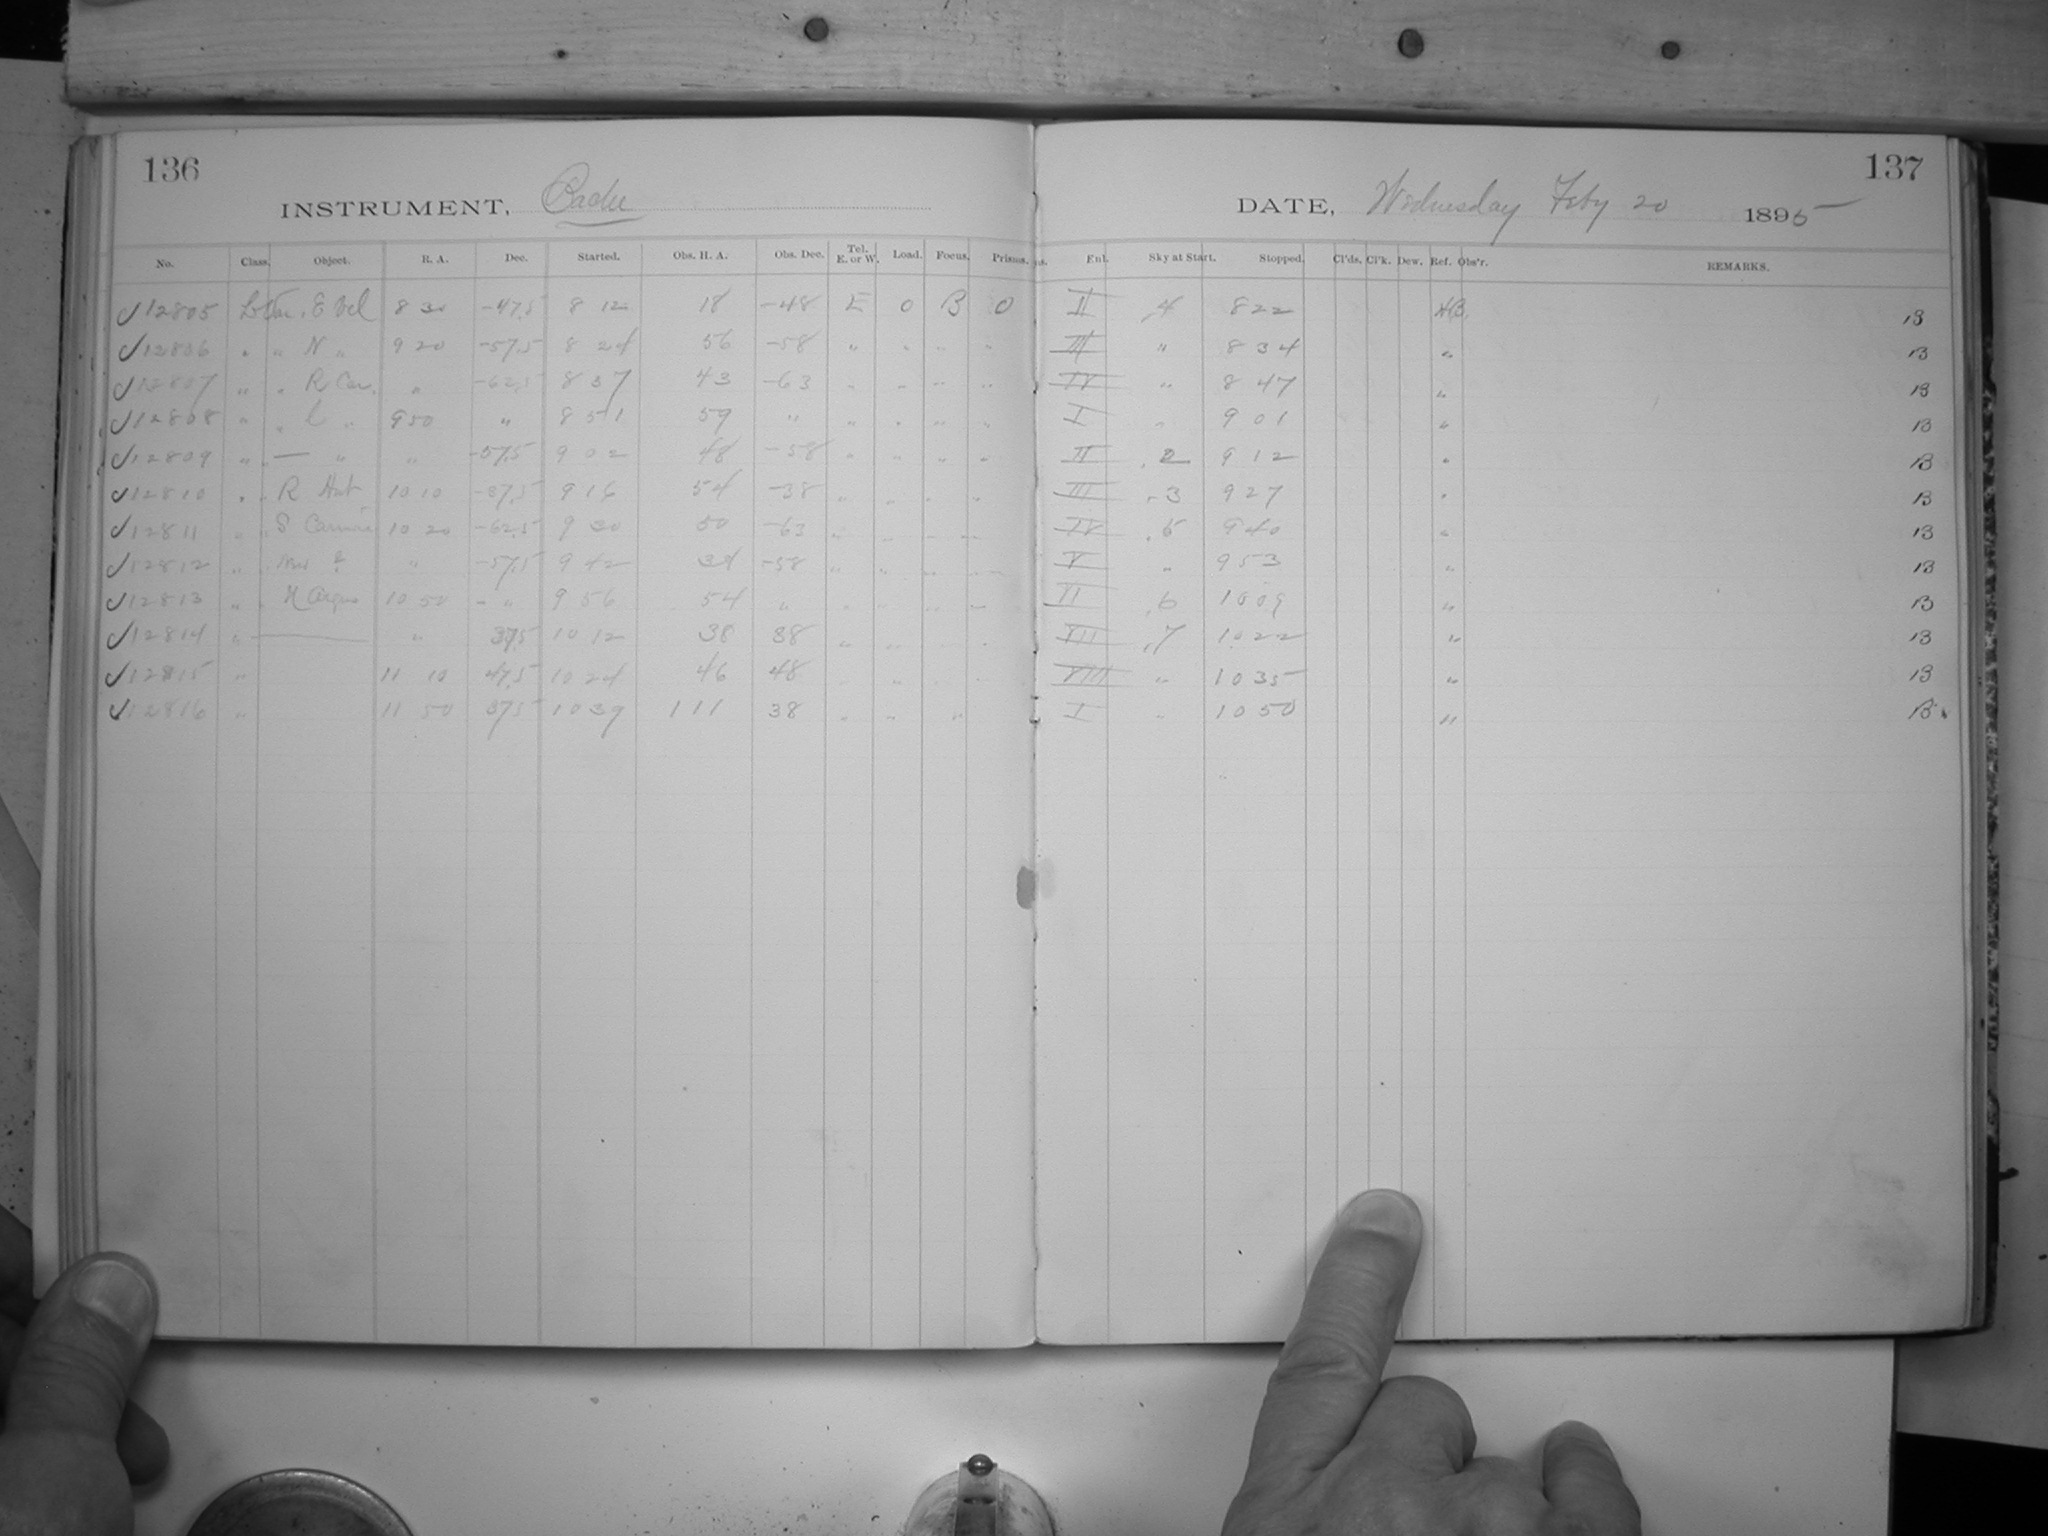 136
137
INSTRUMENT, Bache
DATE, Wednesday Feby 20 1895
No. Class. Object. R. A. Dec. Started. Obs. H. A. Obs. Dec. Tel. E. or W. Load. Focus. Prisms. Enl. Sky at Start. Stopped. Cl'ds. Cl'k. Dew. Ref. Obs'r. REMARKS.
12805 S Vel 8 30 -47.5 8 12 18 -48 E 0 B 0 II 4 8 22 B
12806 " " N " 9 20 -57.5 8 24 56 -58 " " " " III " 8 34 " B
12807 " " R Car. " -62.5 8 37 43 -63 " " " " IV " 8 47 " B
12808 " " l " 9 50 " 8 51 59 " " " " " I " 9 01 " B
12809 " " — " " -57.5 9 02 48 -58 " " " " II 2 9 12 " B
12810 " " R Ant 10 10 -37.5 9 16 54 -38 " " " " III 3 9 27 " B
12811 " " S Carinae 10 20 -62.5 9 30 50 -63 " " " " IV 5 9 40 " B
12812 " " " -57.5 9 42 34 -58 " " " " V " 9 53 " B
12813 " " N Argus 10 50 - " 9 56 54 " " " " " VI 6 10 09 " B
12814 " — " 37.5 10 12 38 38 " " " VII 7 10 22 " B
12815 " 11 10 47.5 10 24 46 48 " " " VIII " 10 35 " B
12816 " 11 50 37.5 10 39 1 11 38 " " " I " 10 50 " B